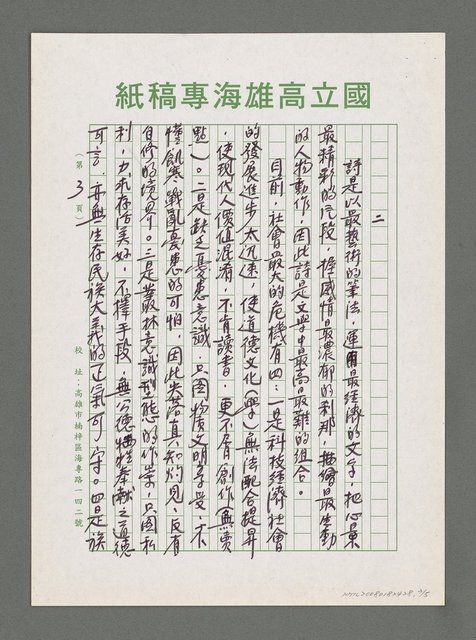 國立高雄海專稿紙
二
詩是以最藝術的筆法，運用最經濟的文字，把心景
最精彩的片段，握感情最濃郁的刹那，描繪最生動
的人物動作，因此詩是文學中最高最難的組合。
目前，社會最大的危機有四：一是科技經濟社會
的發展進步太迅速，使道德文化（學）無法配合提昇
，使現代人價值混淆，不肯讀書，更不屑創作（無賣
點）。二是缺乏憂患意識，只圖物質文明享受，不
懂飢寒戰亂憂患的可怕，因此失落真知灼見，反省
自修的境界。三是叢林意識型態的作祟，只圖私
利，力求存活美好，不擇手段，無公德犧牲奉獻之道德
可言，亦無生存民族大義的正氣可守。四是族
（第 3 頁）
校 址：高雄市楠梓區海專路一四二號
NMTL20080182428, 3/5